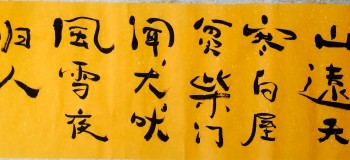 山遠天
寒白屋
貧柴门
闻犬吠
風雪夜
归人